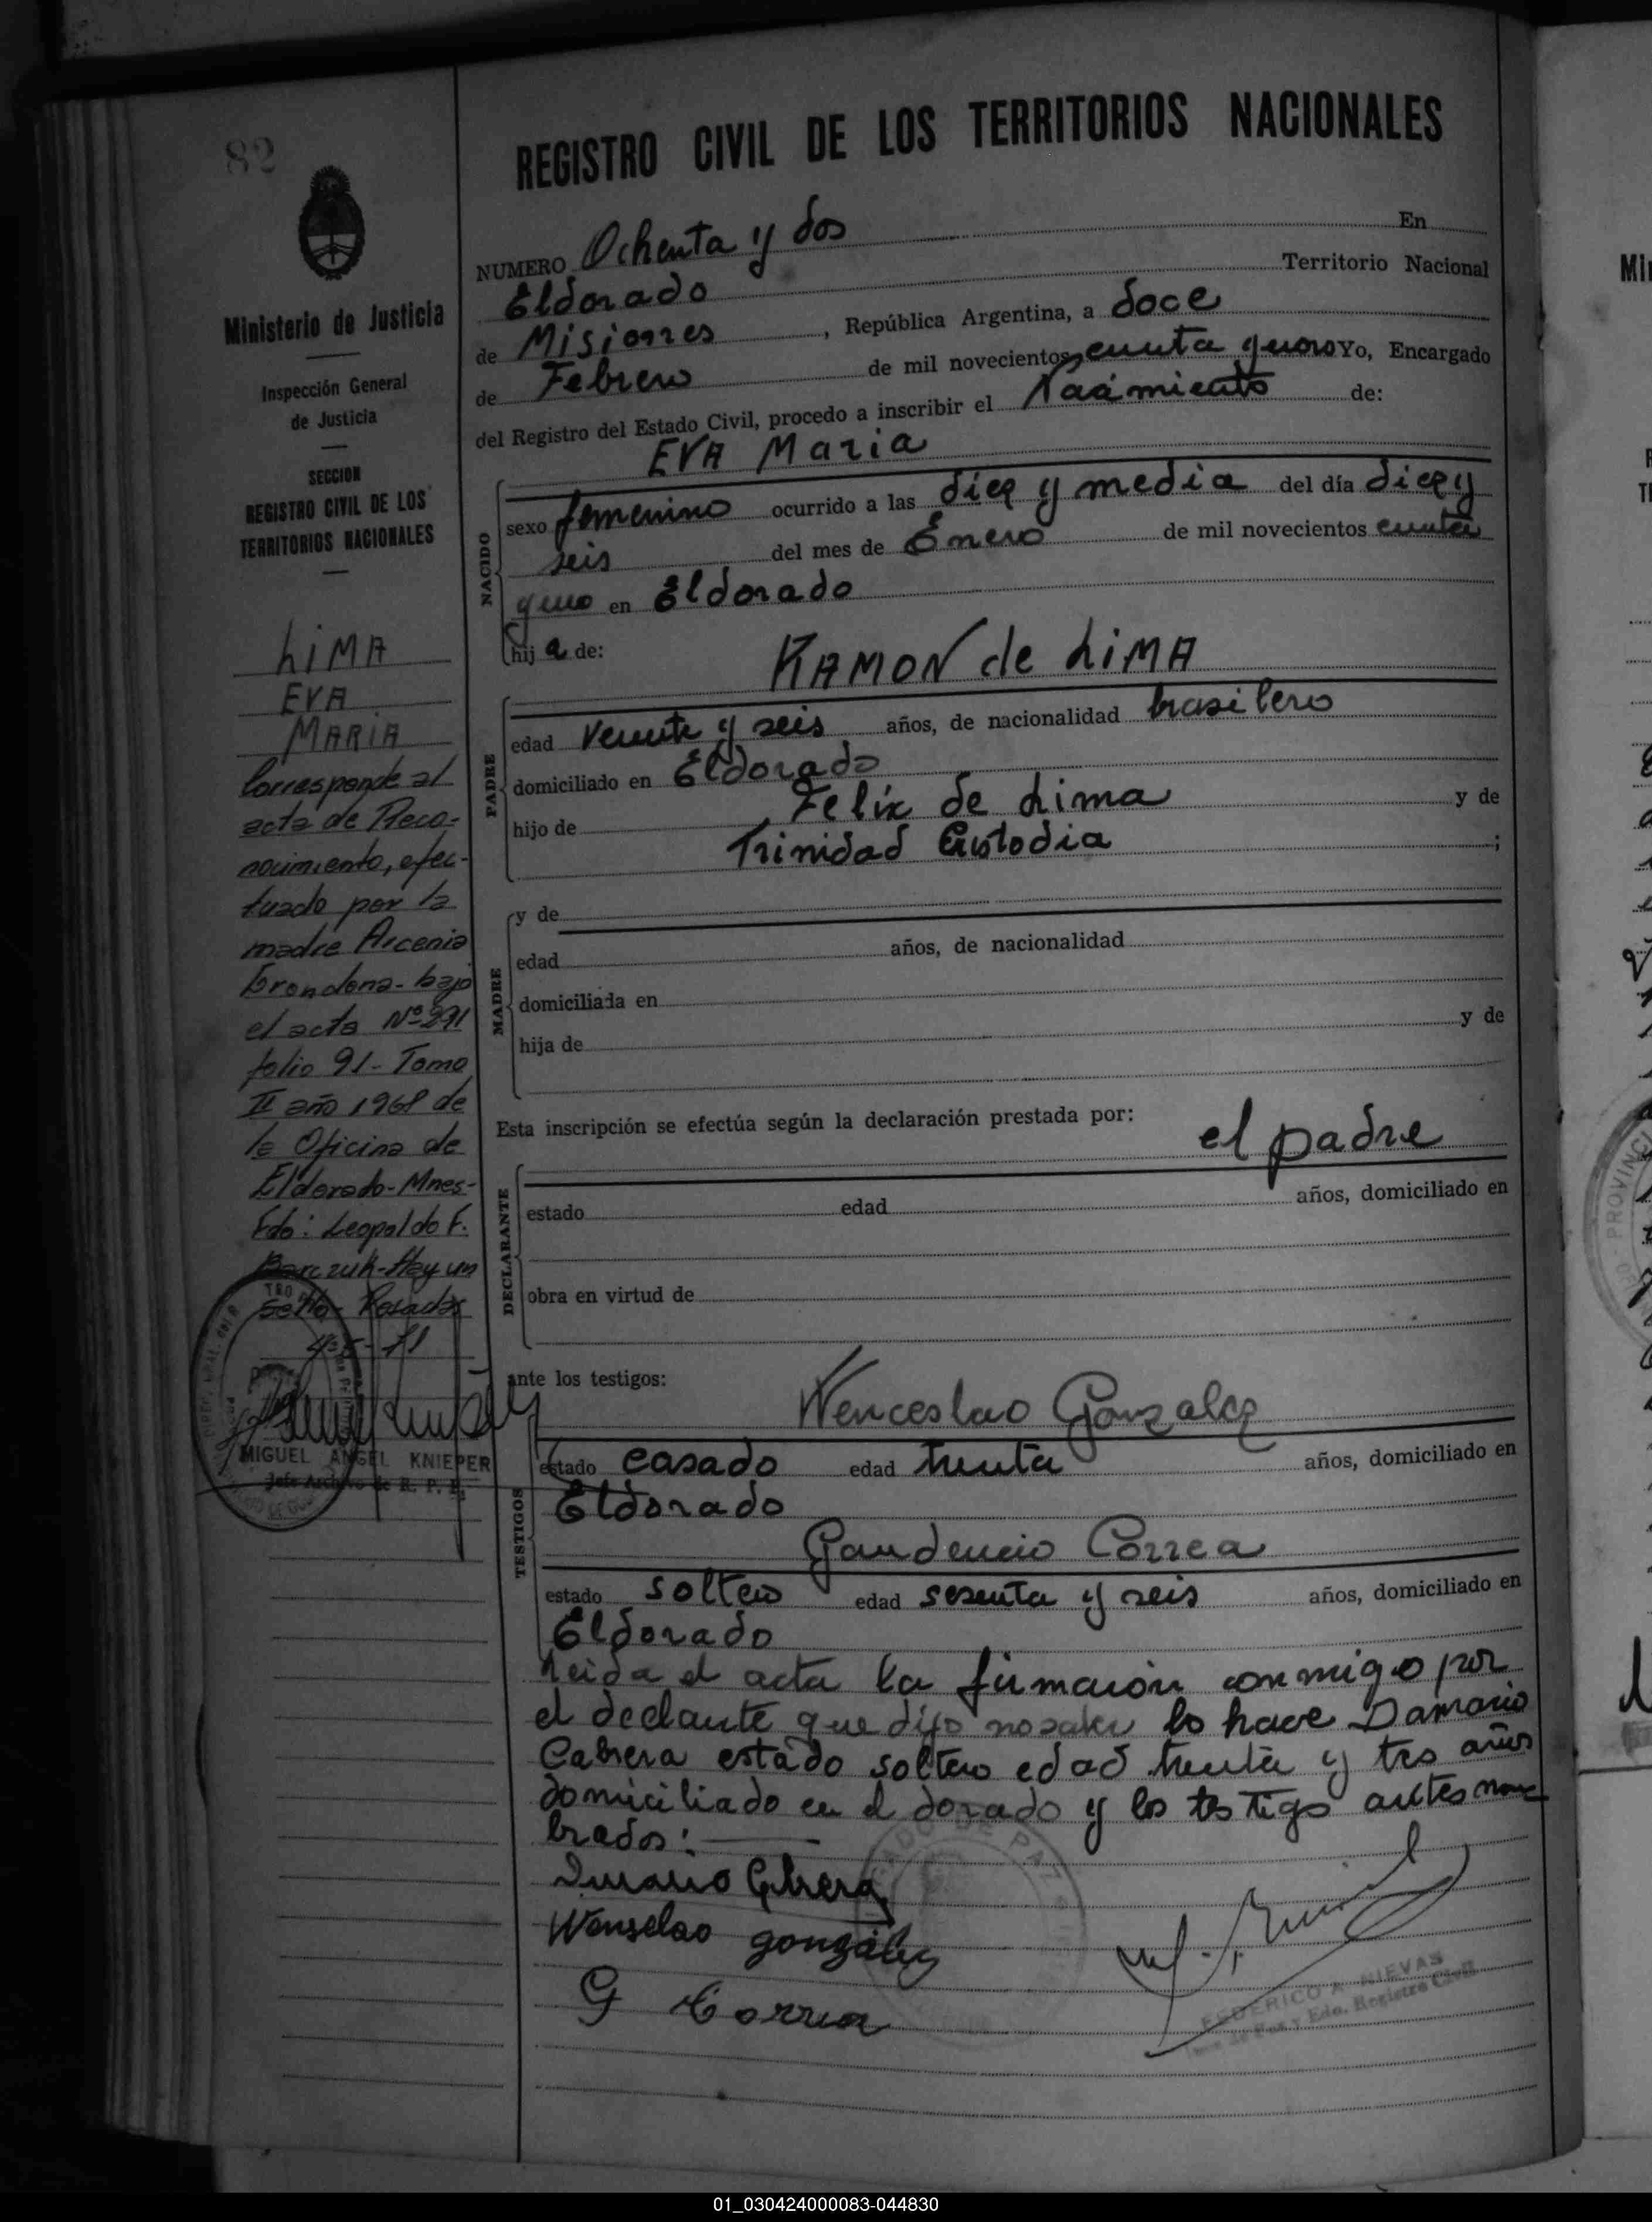 82
REGISTRO CIVIL DE LOS TERRITORIOS NACIONALES
Ministerio de Justicia
Inspección General
de Justicia
SECCION
REGISTRO CIVIL DE LOS
TERRITORIOS NACIONALES
LIMA
EVA
MARIA
Corresponde al
acta de Reco-
nocimiento, efec-
tuado por la
madre Arcenia
bajo
el acta Nº 291
folio 91 - Tomo
II año 1968 de
la Oficina de
Eldorado - Mnes -
Fdo: Leopoldo F.
Barczuk - Hay un
sello - Posadas
MIGUEL ANGEL KNIEPER
Jefe Archivo de R. P. P.
NUMERO Ochenta y dos En
Eldorado Territorio Nacional
de Misiones, República Argentina, a doce
de Febrero de mil novecientos Yo, Encargado
del Registro del Estado Civil, procedo a inscribir el Nacimiento de:
EVA Maria
NACIDO
sexo femenino ocurrido a las diez y media del día diez y
seis del mes de Enero de mil novecientos
en Eldorado
hij a de:
RAMON de LIMA
PADRE
edad veinte y seis años, de nacionalidad brasilero
domiciliado en Eldorado
hijo de Felix de Lima y de
Trinidad Custodia ;
MADRE
y de
edad años, de nacionalidad
domiciliada en
hija de y de
Esta inscripción se efectúa según la declaración prestada por:
el padre
DECLARANTE
estado edad años, domiciliado en
obra en virtud de
ante los testigos:
Wenceslao Gonzalez
TESTIGOS
estado casado edad treinta años, domiciliado en
Eldorado
Gaudencio Correa
estado soltero edad sesenta y seis años, domiciliado en
Eldorado
Leida el acta la firmaron conmigo por
el declante que dijo no saber lo hace Damario
Cabrera estado soltero edad treinta y tres años
domiciliado en el dorado y los testigo antes nom
brados:
Cabrera
Wenselao gonzalez
G Correa
FEDERICO A. NIEVAS
Juez de Paz y Edo. Registro Civil
01_030424000083-044830